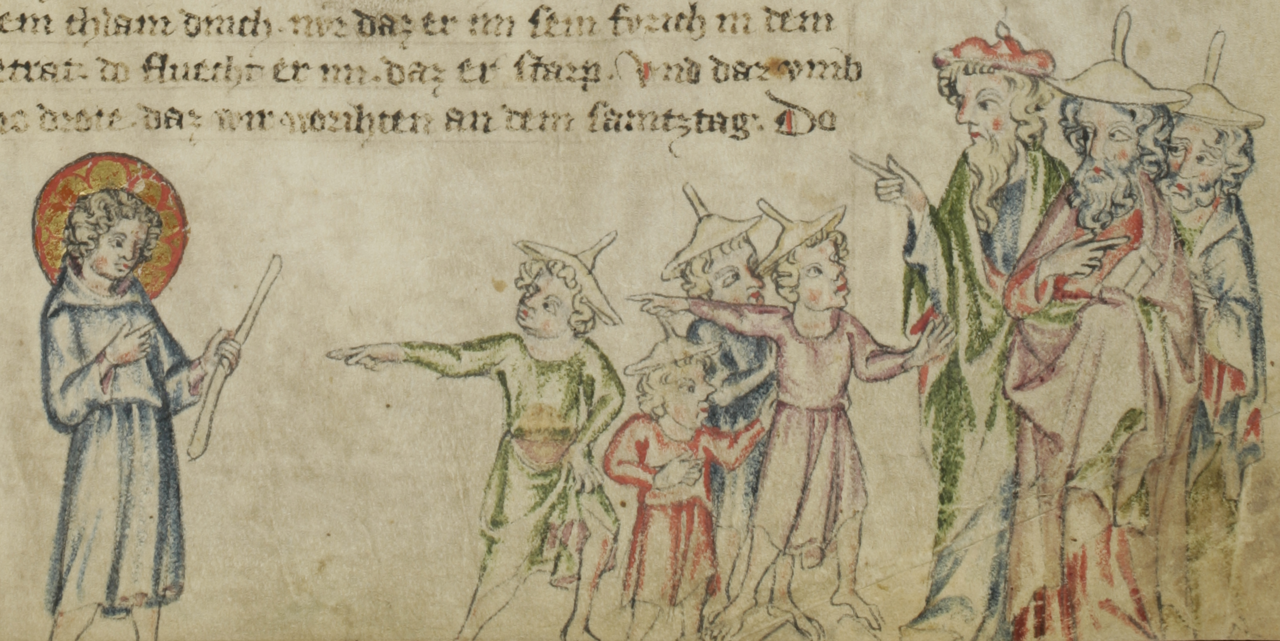 em chlain durch. nur daz er im sein fvrich in dem
etrat. do fluecht er im. daz er starp. Vnd dar vmb
daz wir worihten an dem samtztag. Do